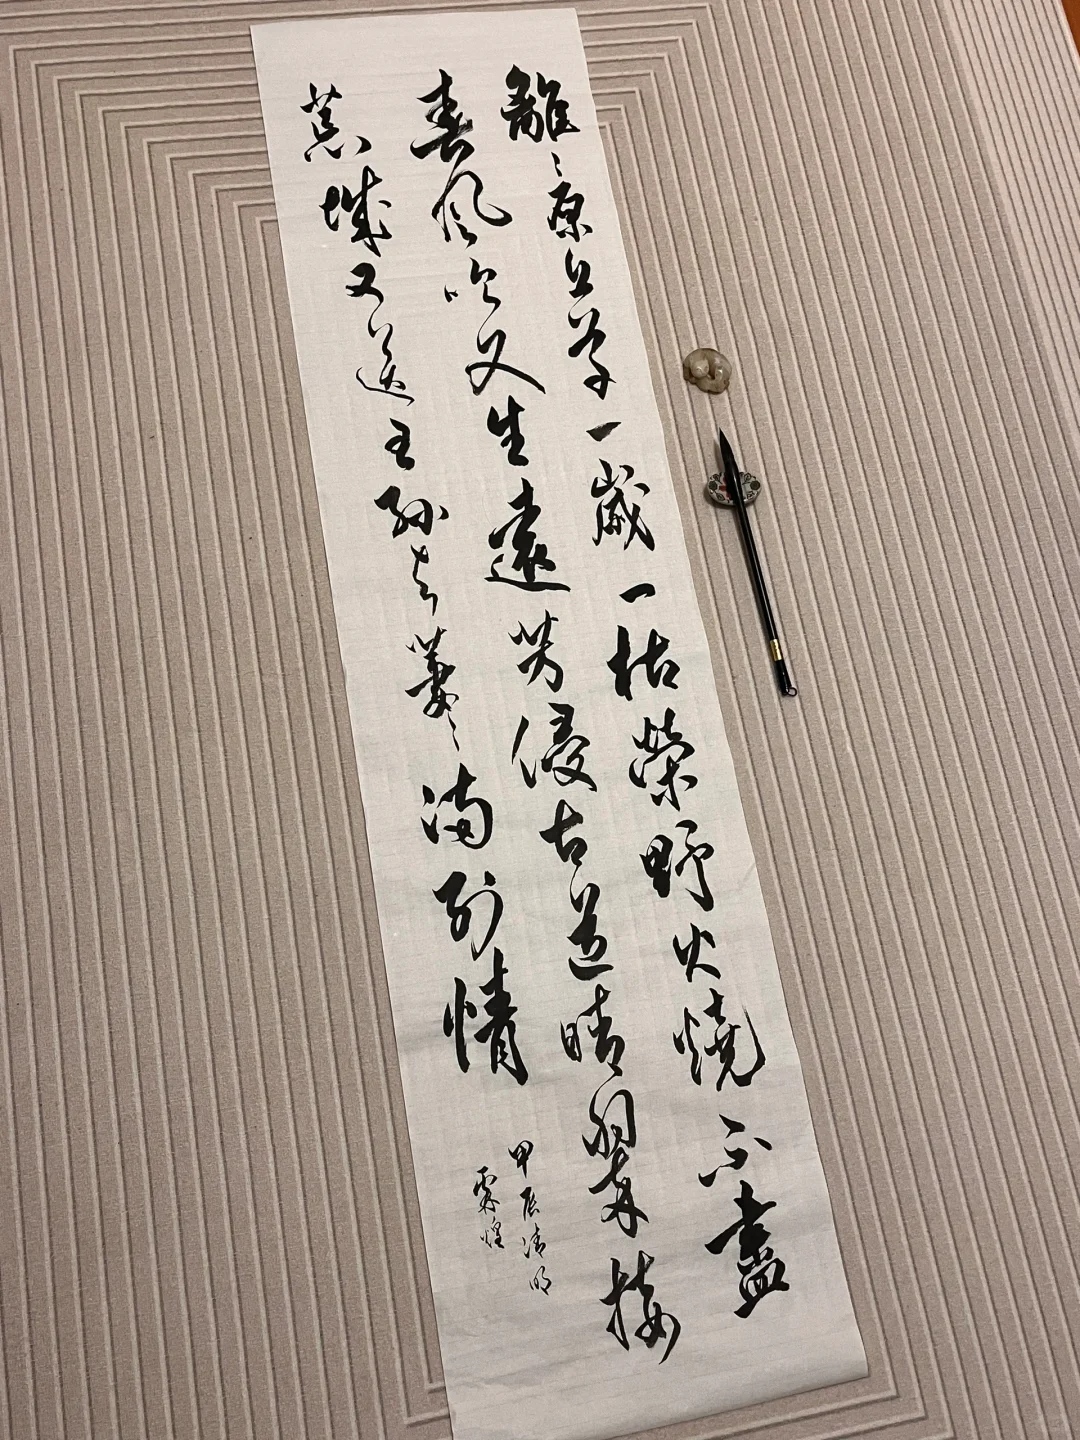 離〻原上草一歲一枯榮野火燒不盡
春風吹又生遠芳侵古道晴翠接
荒城又送王孫去萋〻滿別情
甲辰清明
煌